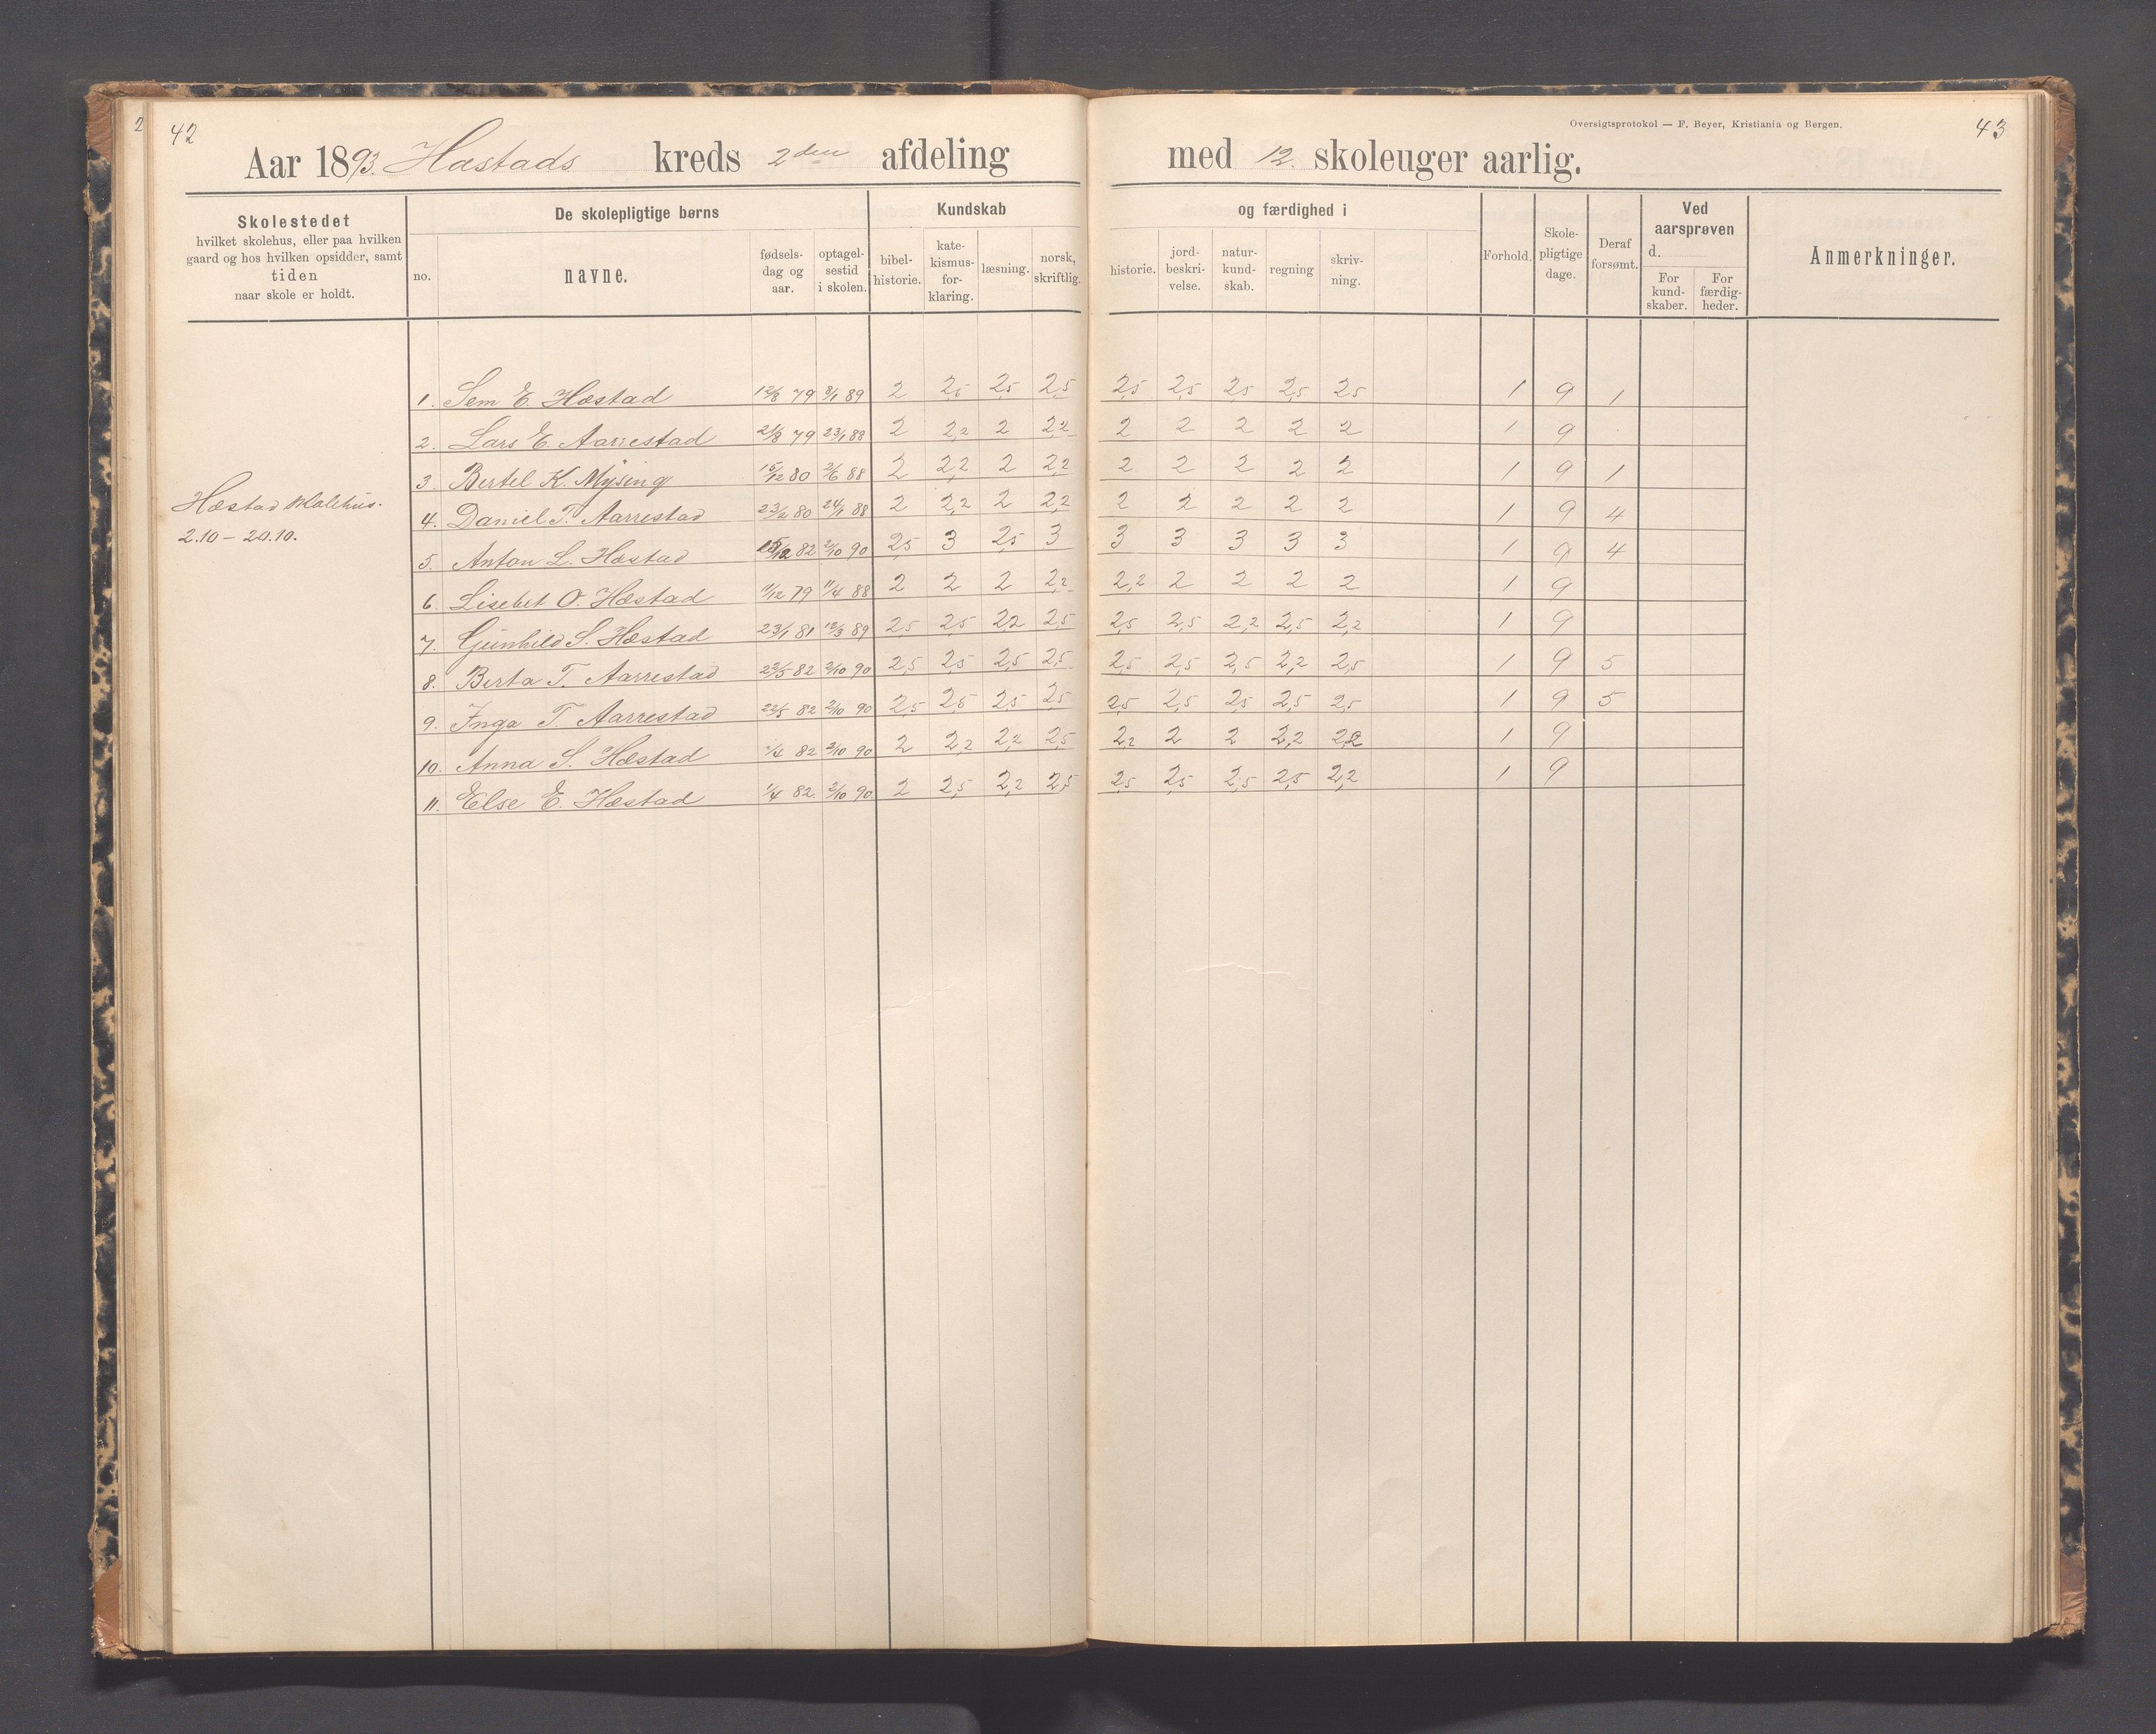 42
Aar 1893. Hæstads kreds 2den afdeling
Skolestedet
hvilket skolehus, eller paa hvilken
gaard og hos hvilken opsidder, samt
tiden
naar skole er holdt.
De skolepligtige børns
no.
navne.
fødsels-
dag og
aar.
optagel-
sestid
i skolen.
Kundskab
bibel-
historie.
kate-
kismus-
for-
klaring.
læsning.
norsk,
skriftlig.
Hæstad skolehus.
2.10 – 20.10.
1. Sem E. Hæstad 12/8 79 8/1 89 2 2,5 2,5 2,5
2. Lars E. Aarrestad 21/8 79 23/1 88 2 2,2 2 2,2
3. Bertel K. Mysing 15/12 80 2/6 88 2 2,2 2 2,2
4. Daniel T. Aarrestad 23/2 80 24/1 88 2 2,2 2 2,2
5. Anton L. Hæstad 82 2/10 90 2,5 3 2,5 3
6. Lisebet O. Hæstad 11/12 79 11/4 88 2 2 2 2,2
7. Gunhild S. Hæstad 23/1 81 12/3 89 2,5 2,5 2,2 2,5
8. Berta T. Aarrestad 22/5 82 2/10 90 2,5 2,5 2,5 2,5
9. Inga T. Aarrestad 22/5 82 2/10 90 2,5 2,5 2,5 2,5
10. Anna S. Hæstad 82 2/10 90 2 2,2 2,2 2,5
11. Else E. Hæstad 1/4 82. 2/10 90. 2 2,5 2,2 2,5
Oversigtsprotokol — F. Beyer, Kristiania og Bergen.
43
med 12. skoleuger aarlig.
og færdighed i
historie.
jord-
beskri-
velse.
natur-
kund-
skab.
regning
skriv-
ning.
Forhold.
Skole-
pligtige
dage.
Deraf
forsømt.
Ved
aarsprøven
d.
For
kund-
skaber.
For
færdig-
heder.
Anmerkninger.
2,5 2,5 2,5 2,5 2,5 1 9 1
2 2 2 2 2 1 9
2 2 2 2 2 1 9 1
2 2 2 2 2 1 9 4
3 3 3 3 3 1 9 4
2,2 2 2 2 2 1 9
2,5 2,5 2,2 2,5 2,2 1 9
2,5 2,5 2,5 2,2 2,5 1 9 5
2,5 2,5 2,5 2,5 2,5 1 9 5
2,2 2 2 2,2 2,2 1 9
2,5 2,5 2,5 2,5 2,2 1 9